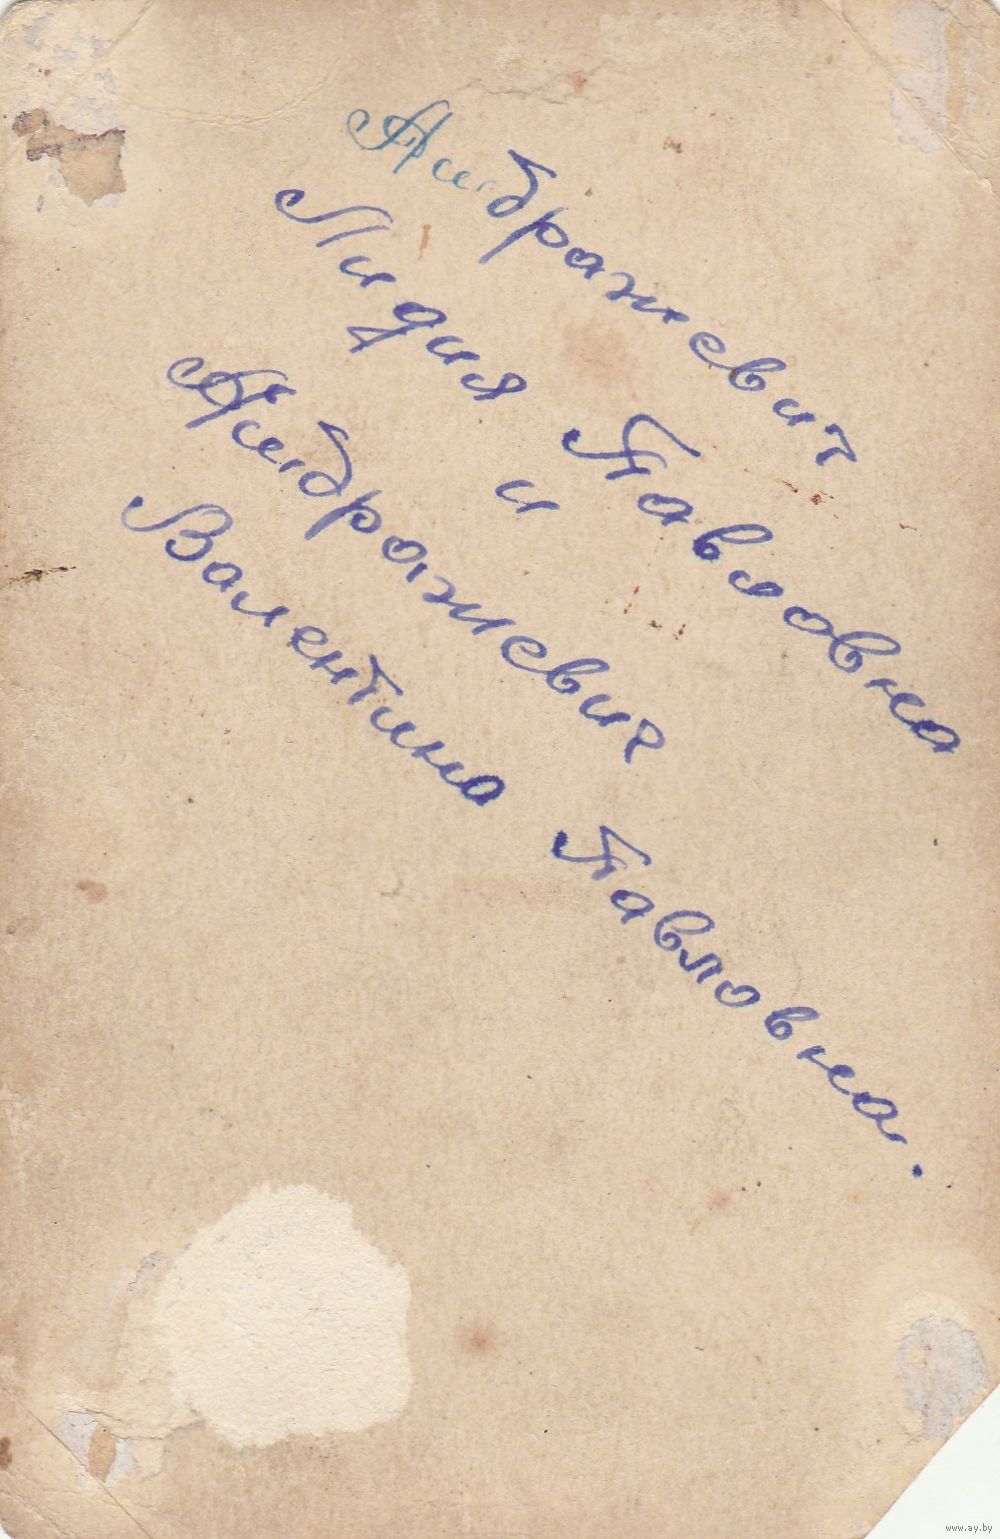 Амбражевич
Лидия Павловна
и
Амбражевич
Валентина Павловна.
www.ay.by